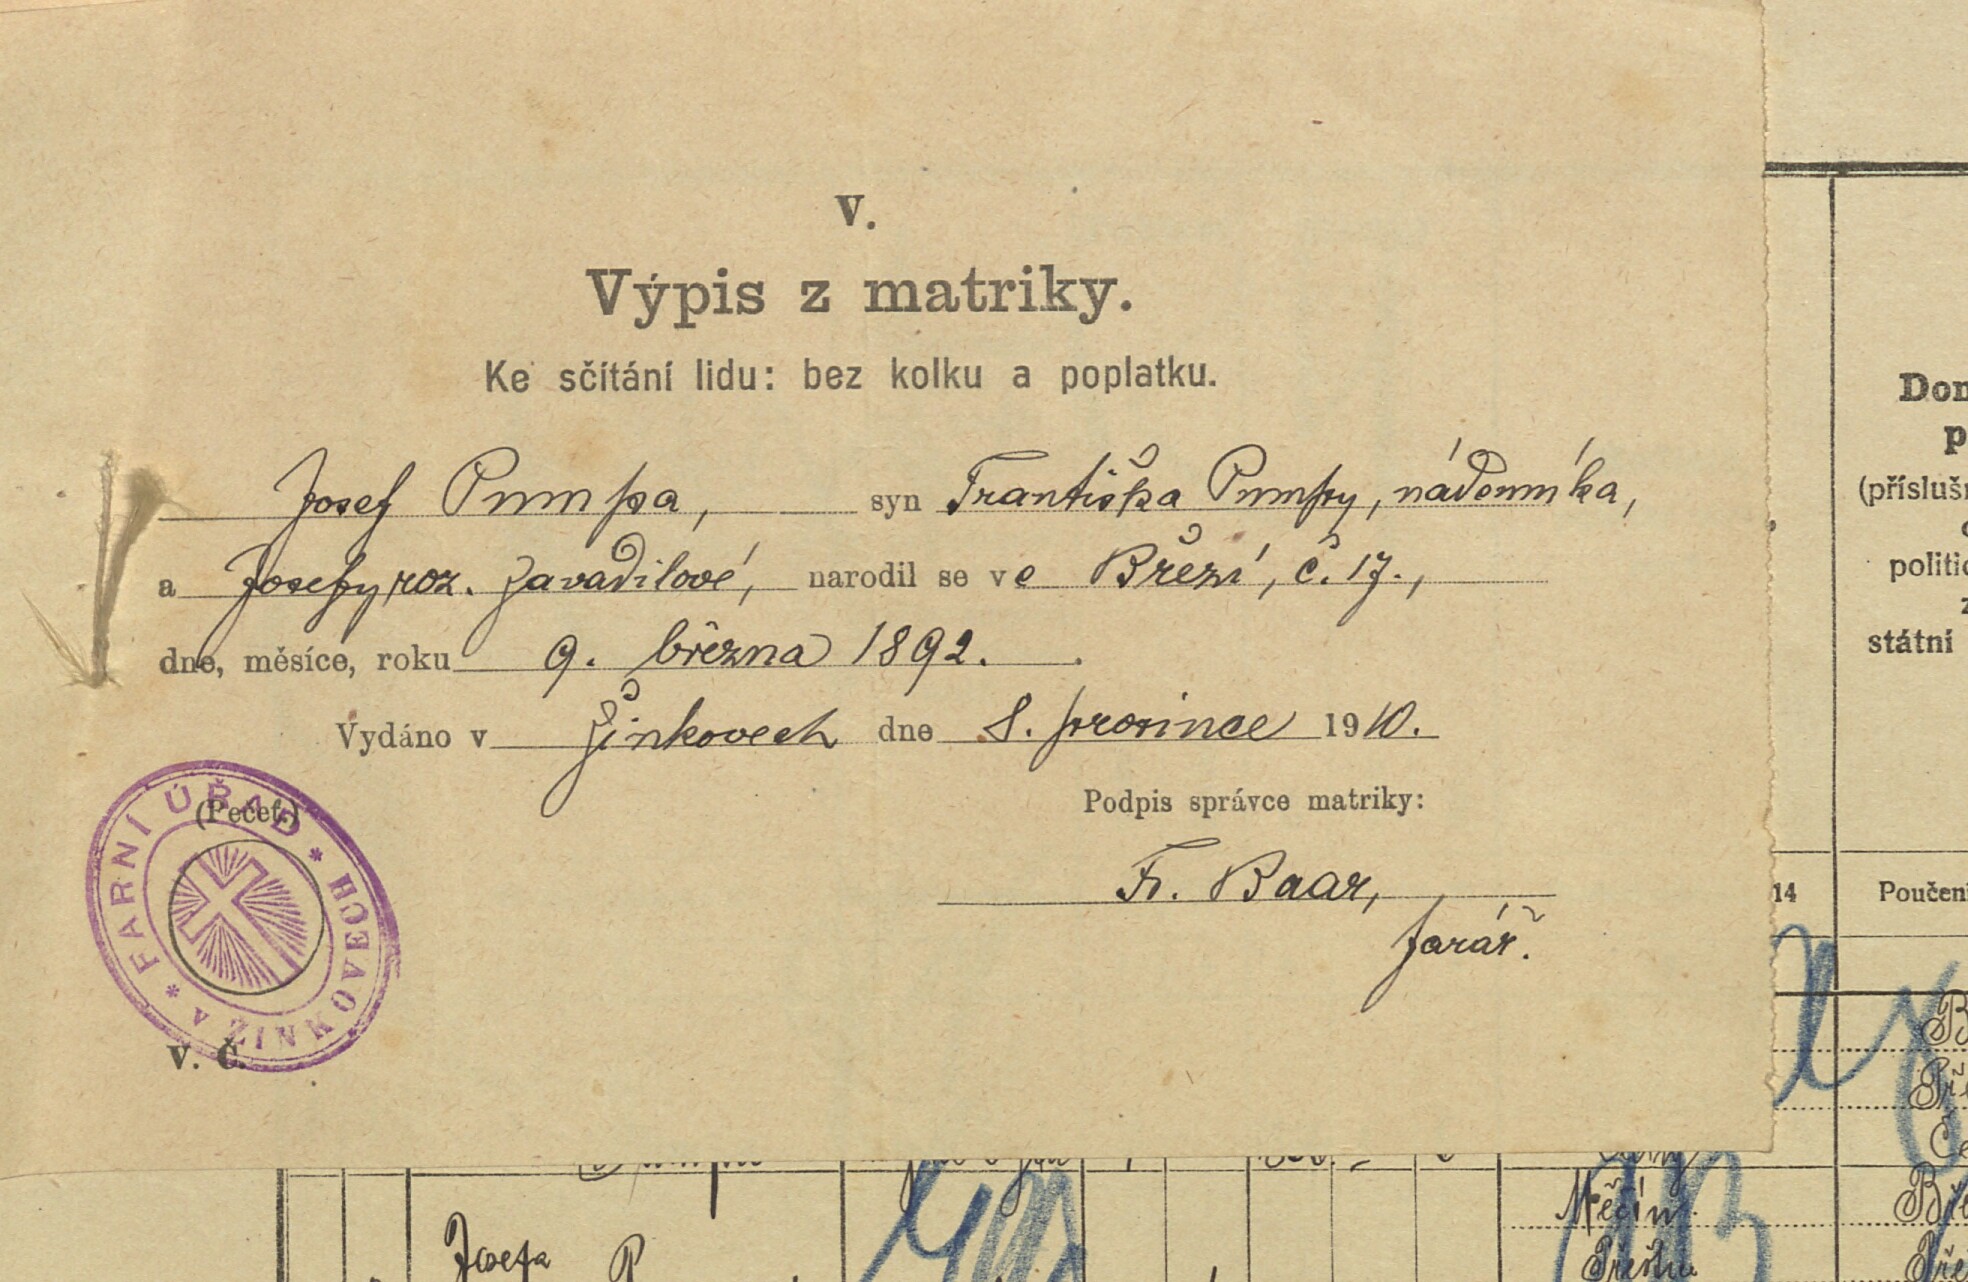 V.
Výpis z matriky.
Ke sčítání lidu: bez kolku a poplatku.
Josef Pumpa, syn Františka Pumpy, nádenníka,
a Josefy, roz. Zavadilové, narodil se ve Březí, č. 17.,
dne, měsíce, roku 9. března 1892.
Vydáno v Žinkovech dne 8. prosince 1910.
(Pečeť.)
Podpis správce matriky:
Fr. Baar,
farář.
* FARNÍ ÚŘAD * v ŽINKOVECH
V. Č.
Dom
p
(přísluš
politic
z
státní
14 Poučen
Měčín
Josefa P